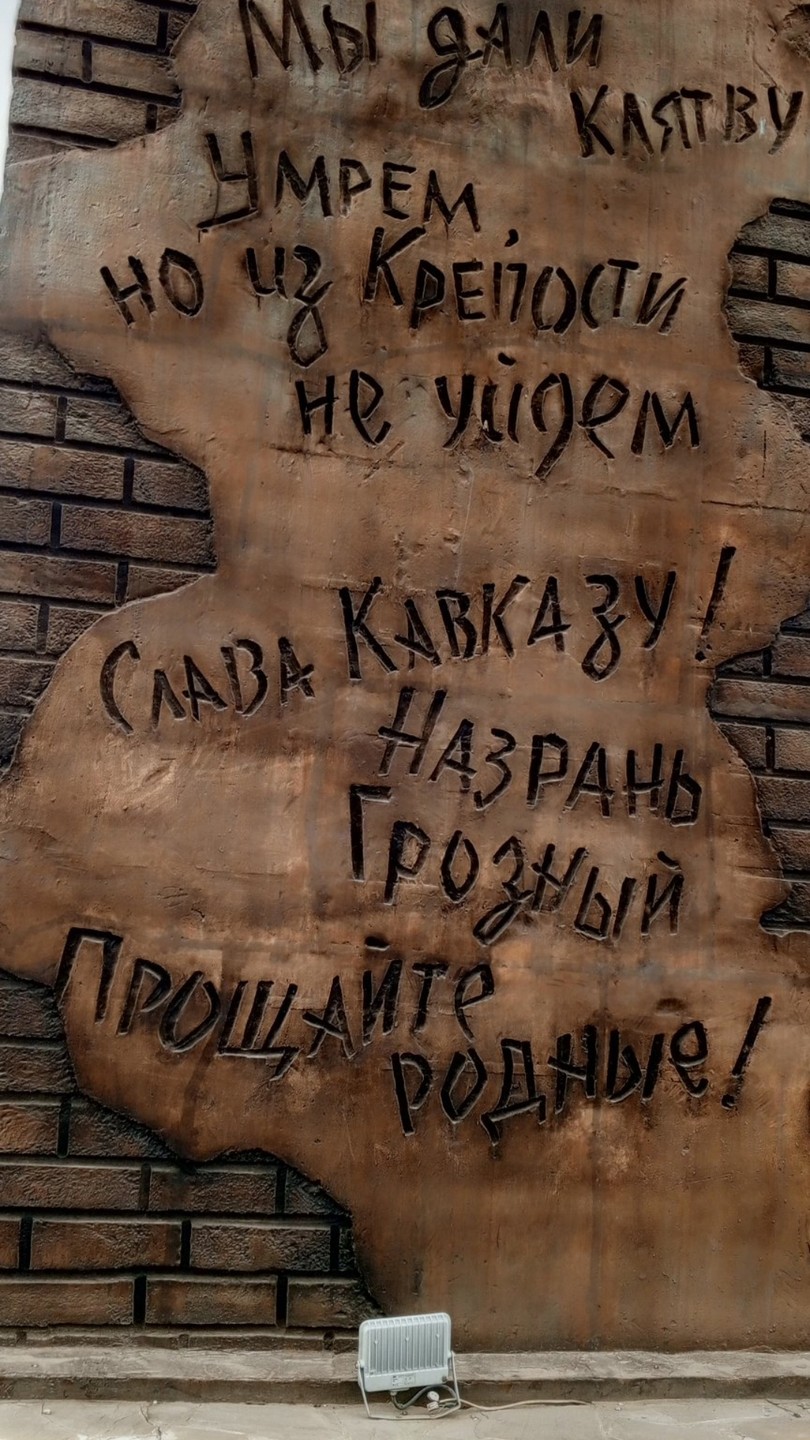 Мы дали
клятву
Умрем,
но из Крепости
не уйдем
Слава Кавказу!
Назрань
Грозный
Прощайте
родные!